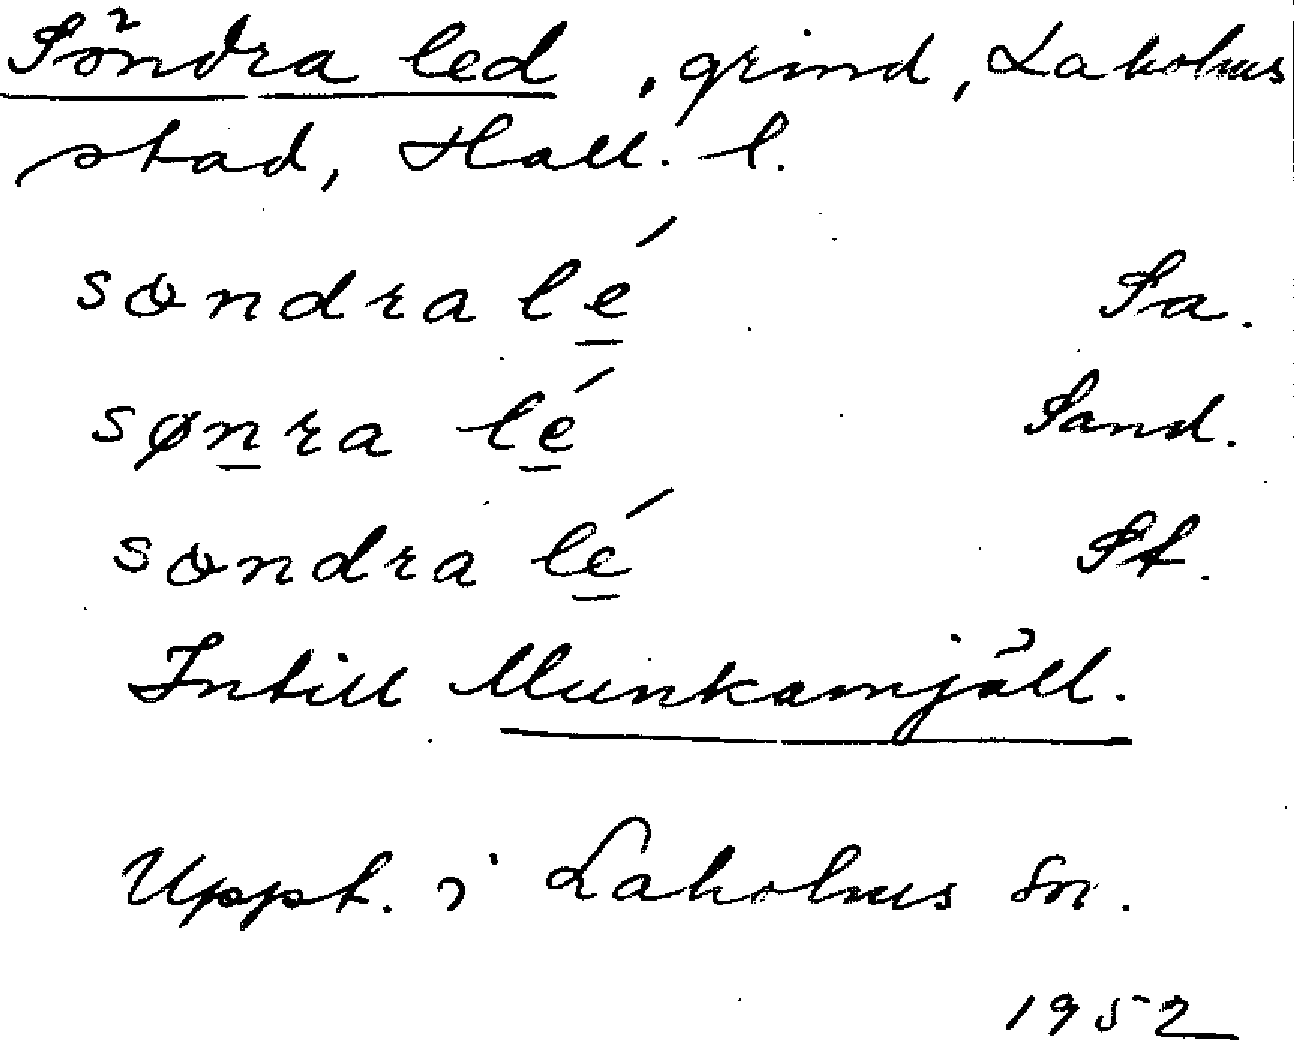 Söndra led, grind, Laholms
stad, Hall. l.
sơndra lé Sa.
sønra lé Sand.
sơndra lé St.
Intill Munkamjäll.
Uppt. i Laholms sn.
1952